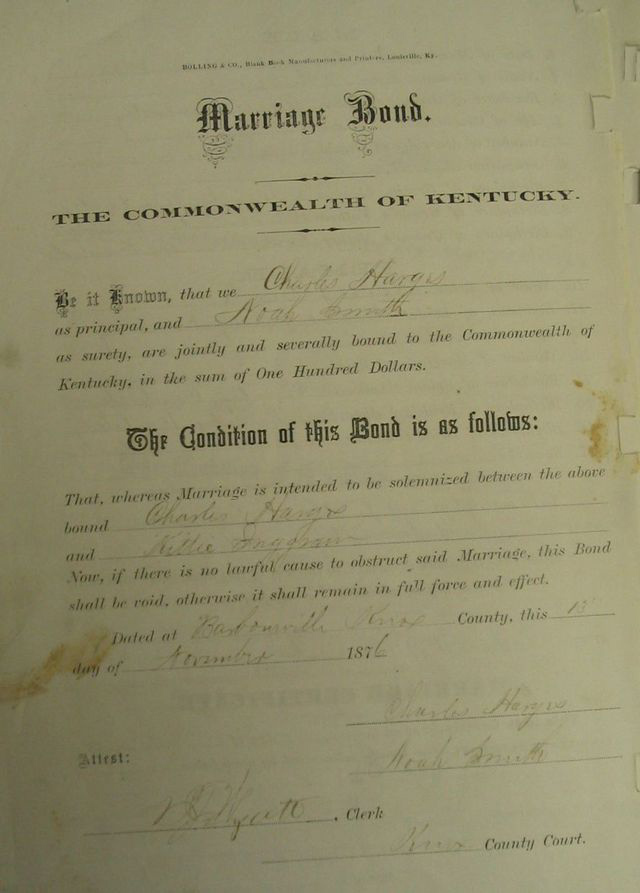 BOLLING & CO., Blank Book Manufacturers and Printers, Louisville, Ky.
Marriage Bond.
THE COMMONWEALTH OF KENTUCKY.
Be it Known, that we Charles Harges
as principal, and Noah Smith
as surety, are jointly and severally bound to the Commonwealth of
Kentucky, in the sum of One Hundred Dollars.
The Condition of this Bond is as follows:
That, whereas Marriage is intended to be solemnized between the above
bound Charles Harges
and
Now, if there is no lawful cause to obstruct said Marriage, this Bond
shall be void, otherwise it shall remain in full force and effect.
Dated at Barbourville Knox County, this 15
day of November 1876
Charles Harges
Attest:
Noah Smith
, Clerk
Knox County Court.